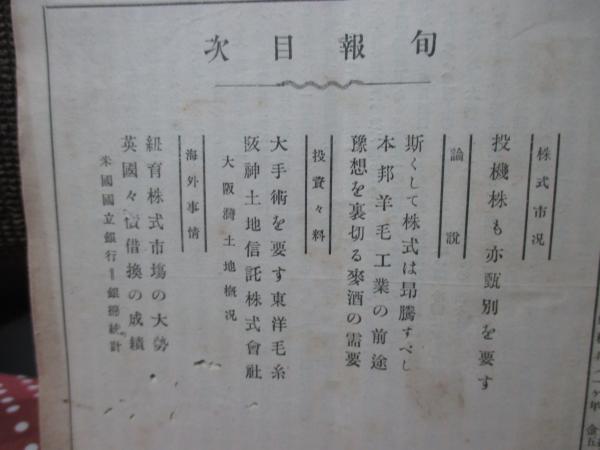 旬報目次
株式市况
投機株も亦甄別を要す
論説
斯くして株式は昻騰すべし
本邦羊毛工業の前途
豫想を裏切る麥酒の需要
投資々料
大手術を要す東洋毛糸
阪神土地信託株式會社
大阪灣土地槪况
海外事情
紐育株式市塲の大勢
英國々債借換の成績
米國國立銀行
銀總統計